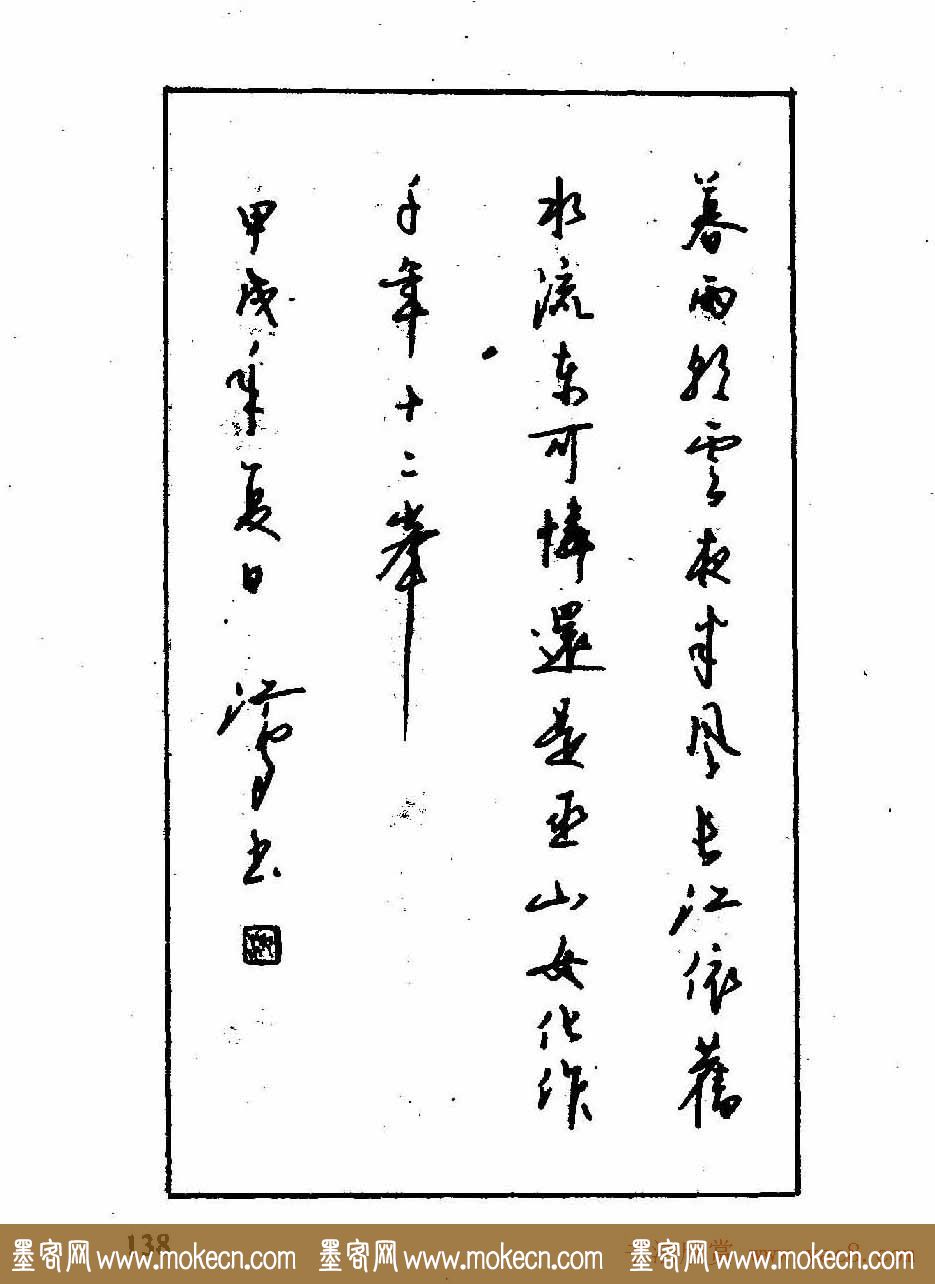 暮雨朝雲夜半風長江依舊
水流东可憐還是巫山女化作
千年十二峯
甲戌年夏日 书
138
墨客网 www.mokecn.com 墨客网 www.mokecn.com 墨客网 www.mokecn.com